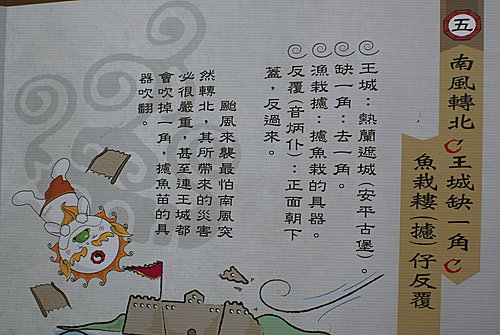 五
南風轉北 王城缺一角
魚栽耬(攄)仔反覆
王城：熱蘭遮城(安平古堡)。
缺一角：去一角。
漁栽攄：攄魚栽的具器。
反覆(音炳仆)：正面朝下
蓋，反過來。
颱風來襲最怕南風突
然轉北，其所帶來的災害
必很嚴重，甚至連王城都
會吹掉一角，攄魚苗的具
器吹翻。